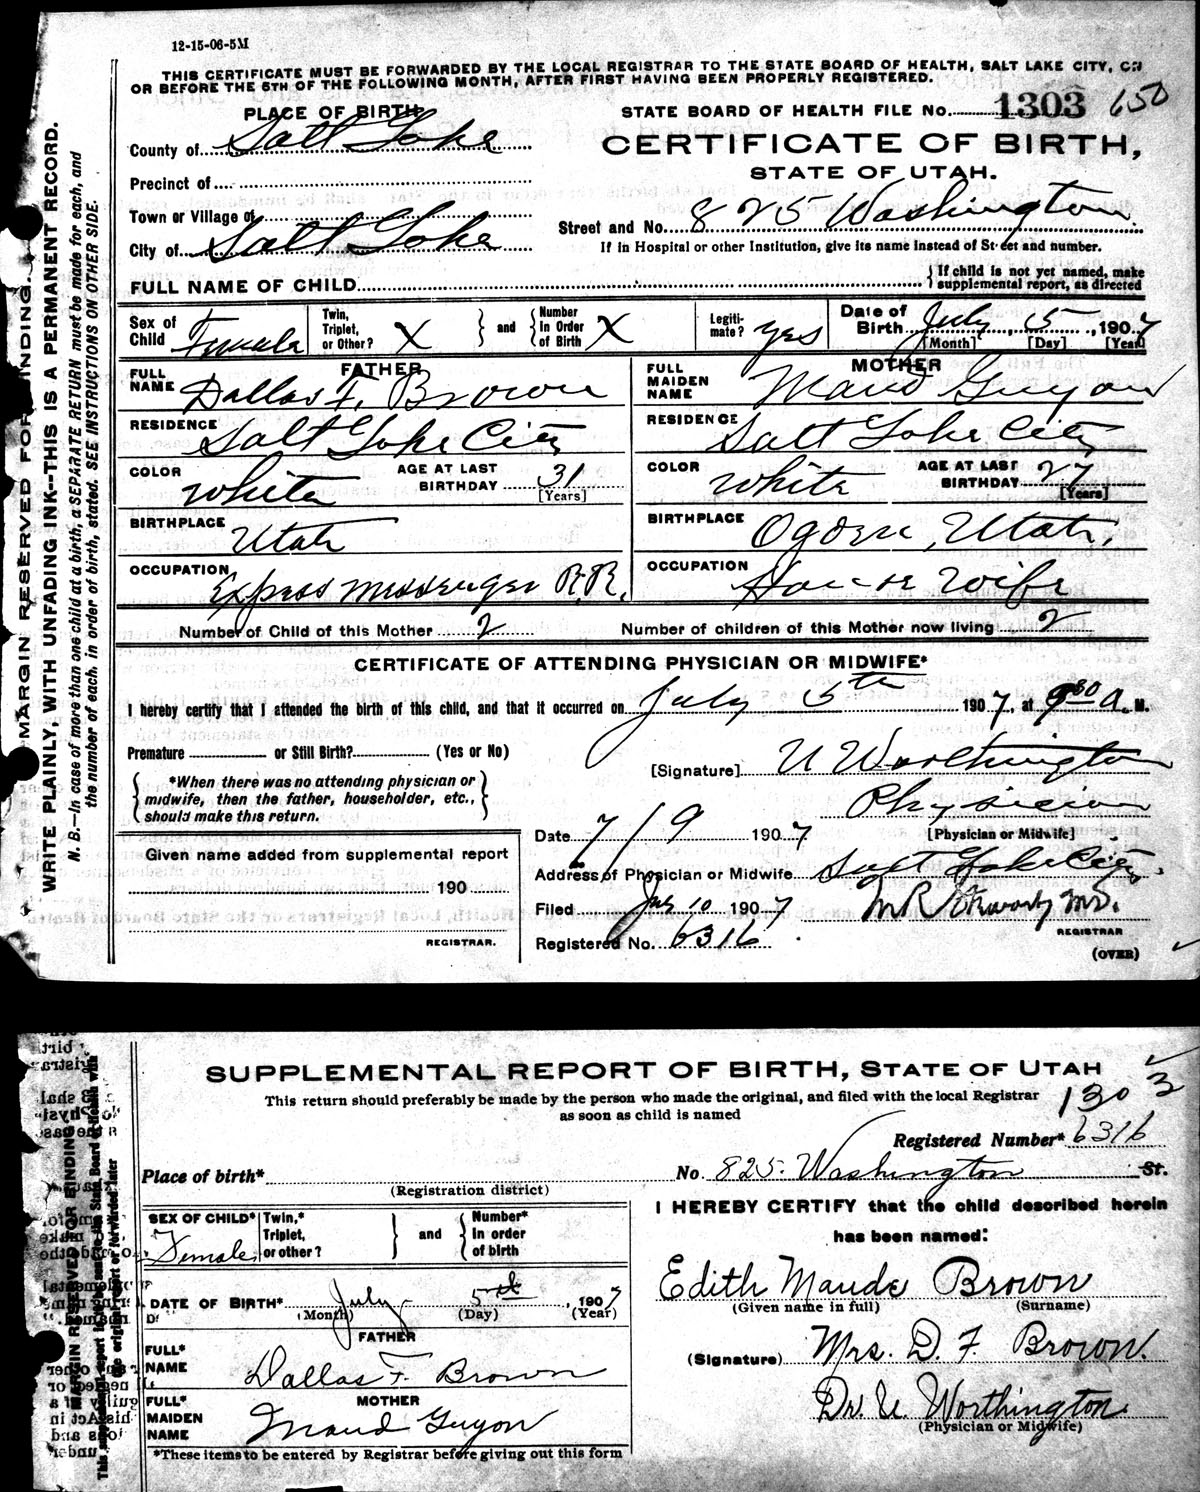 12-15-06-5M
THIS CERTIFICATE MUST BE FORWARDED BY THE LOCAL REGISTRAR TO THE STATE BOARD OF HEALTH, SALT LAKE CITY, ON
OR BEFORE THE 5TH OF THE FOLLOWING MONTH, AFTER FIRST HAVING BEEN PROPERLY REGISTERED.
PLACE OF BIRTH
STATE BOARD OF HEALTH FILE No. 1303 650
County of Salt Lake
CERTIFICATE OF BIRTH,
STATE OF UTAH.
Precinct of
Town or Village of
Street and No. 825 Washington
City of Salt Lake
If in Hospital or other Institution, give its name instead of Street and number.
FULL NAME OF CHILD
If child is not yet named, make
supplemental report, as directed
Sex of Child Female
Twin, Triplet, or Other? X and Number In Order of Birth X
Legitimate? yes
Date of Birth July 5, 1907
[Month] [Day] [Year]
FATHER
MOTHER
FULL NAME Dallas F. Brown
FULL MAIDEN NAME Maud Guyon
RESIDENCE Salt Lake City
RESIDENCE Salt Lake City
COLOR White AGE AT LAST BIRTHDAY 31 [Years]
COLOR White AGE AT LAST BIRTHDAY 27 [Years]
BIRTHPLACE Utah
BIRTHPLACE Ogden, Utah,
OCCUPATION Express messenger R.R.
OCCUPATION House Wife
Number of Child of this Mother 2
Number of children of this Mother now living 2
CERTIFICATE OF ATTENDING PHYSICIAN OR MIDWIFE*
I hereby certify that I attended the birth of this child, and that it occurred on July 5th 1907, at 9 30 A. M.
Premature or Still Birth? (Yes or No)
[Signature] U Worthington
*When there was no attending physician or
midwife, then the father, householder, etc.,
should make this return.
Physician
[Physician or Midwife]
Date 7/9 1907
Given name added from supplemental report
190
REGISTRAR.
Address of Physician or Midwife Salt Lake City
Filed July 10 1907 M.D.
REGISTRAR
Registered No. 6316
(OVER)
MARGIN RESERVED FOR BINDING.
WRITE PLAINLY, WITH UNFADING INK--THIS IS A PERMANENT RECORD.
N. B.—In case of more than one child at a birth, a SEPARATE RETURN must be made for each, and
the number of each, in order of birth, stated. SEE INSTRUCTIONS ON OTHER SIDE.
SUPPLEMENTAL REPORT OF BIRTH, STATE OF UTAH
This return should preferably be made by the person who made the original, and filed with the local Registrar
as soon as child is named
1303
Registered Number* 6316
Place of birth*
(Registration district)
No. 825 Washington St.
SEX OF CHILD* Female
Twin,* Triplet, or other? and Number* In order of birth
I HEREBY CERTIFY that the child described herein
has been named:
Edith Maude Brown
(Given name in full) (Surname)
DATE OF BIRTH* July 5th, 1907
(Month) (Day) (Year)
FATHER
FULL* NAME Dallas F. Brown
(Signature) Mrs. D. F. Brown.
MOTHER
FULL* MAIDEN NAME Maud Guyon
Dr. U. Worthington
(Physician or Midwife)
*These items to be entered by Registrar before giving out this form
MARGIN RESERVED FOR BINDING